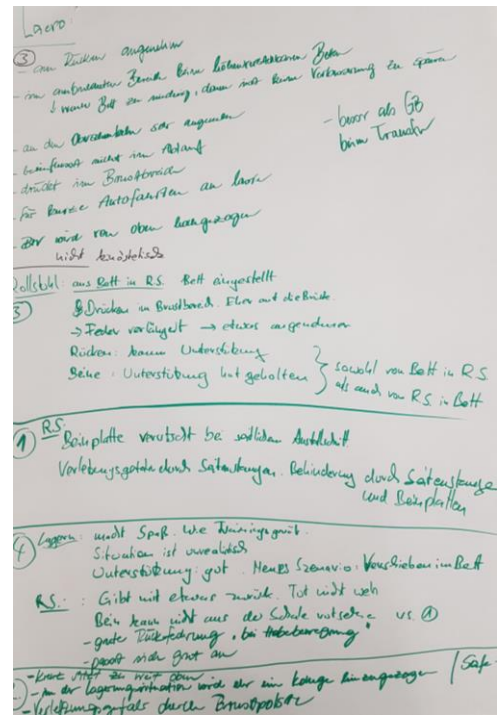 ③ - am Rücken angenehm
- im ambulanten Bereich beim höhenverstellbaren Betten
↓ wenn Bett zu niedrig, dann ist keine Verbesserung zu spüren
- an den Oberschenkeln sehr angenehm
- beeinflusst nicht im Ablauf
- drückt im Brustbereich
- besser als GB
beim Transfer
- Für kurze Autofahrten an lassen
- wird von oben
nicht kinästhetisch
Rollstuhl: aus Bett in R.S. Bett eingestellt
③ Drücken im Brustbereich. Eher auf die Brüste
→ Feder verlängert → etwas angenehmer
Rücken: kaum Unterstützung
Beine: Unterstützung gut gehalten
sowohl von Bett in R.S.
als auch von R.S. in Bett
① R.S.:
Beinplatte verrutscht bei seitlichem
Verletzungsgefahr durch Seitenstangen. Behinderung durch Seitenstange
und Beinplatten
④ Lagern: macht Spaß. Wie Trainingsgerät.
Situation ist unrealistisch
Unterstützung: gut. Neues Szenario: Verschieben im Bett
R.S.: Gibt mir etwas zurück. Tut nicht weh
Bein kann nicht aus der Schale vs. ①
- gute Rückfederung, bei Hebebewegung"
- passt sich gut an
- zu weit oben
- In der Lagerungssituation wird eher in eine hineingezogen
- Verletzungsgefahr durch Brustpolster